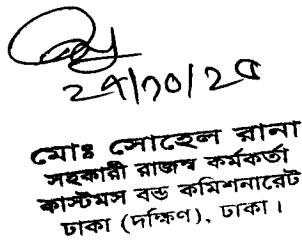 ২৭/১০/২৫
মোঃ সোহেল রানা
সহকারী রাজস্ব কর্মকর্তা
কাস্টমস বন্ড কমিশনারেট
ঢাকা (দক্ষিণ), ঢাকা।